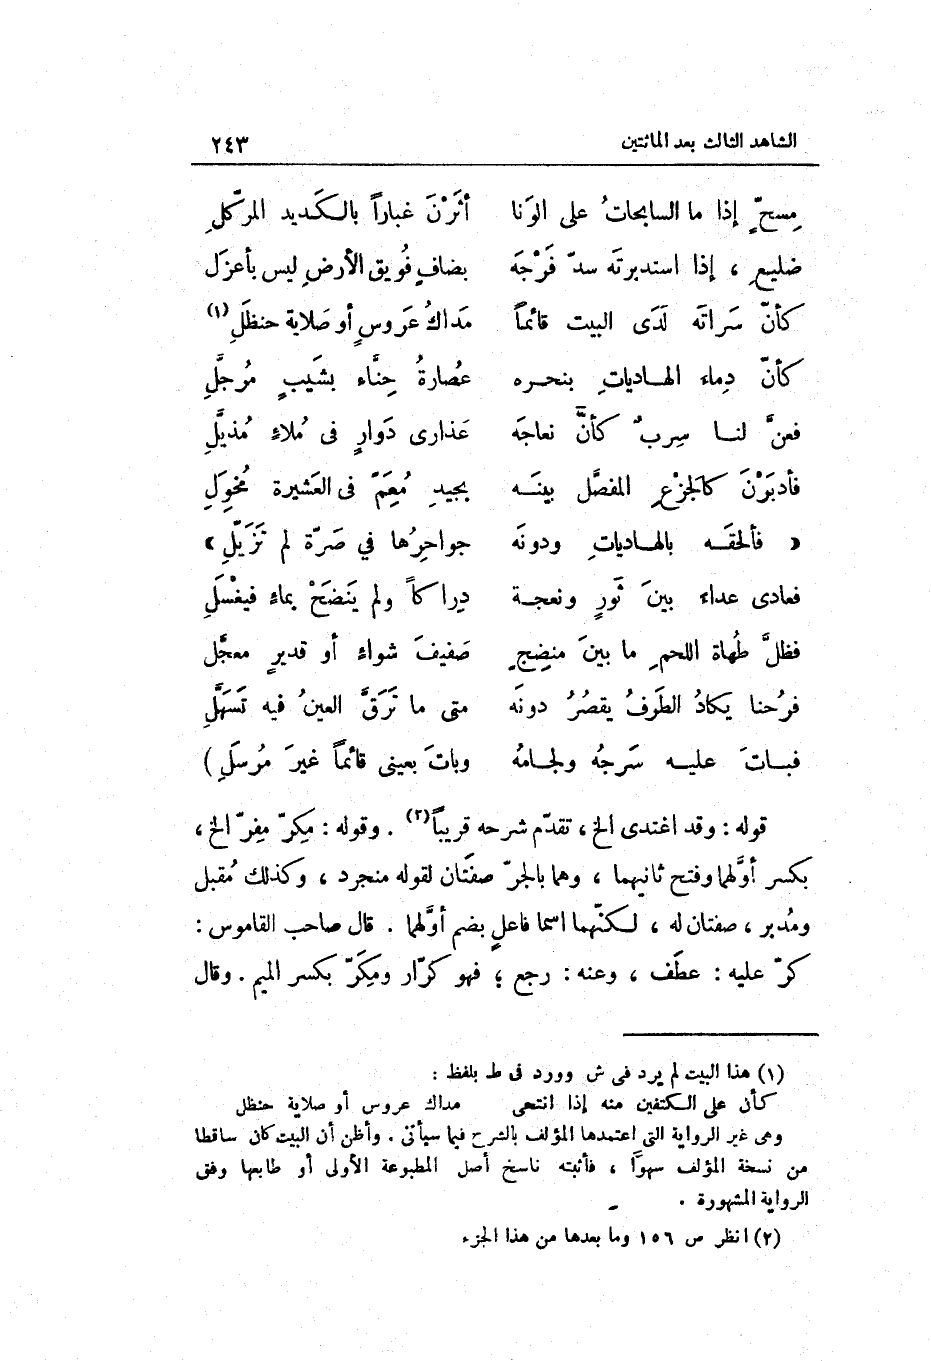 الشاهد الثالث بعد المائتين ٢٤٣
مِسحٍّ إذا ما السابحاتُ على الوَنا أثَرْنَ غباراً بالكَديد المركّلِ
ضليعٍ ، إذا استدبرتَه سدّ فَرْجَه بضافٍ فُويق الأرضِ ليس بأعزل
كأنّ سَراتَه لَدَى البيت قائماً مَداكُ عَروسٍ أو صَلاية حنظَلِ (١)
كأنّ دِماء الهادياتِ بنحره عُصارةُ حِنَّاء بشَيبٍ مُرجَّلِ
فعنَّ لنا سِربٌ كأنَّ نعاجَه عَذارى دَوارٍ فى مُلاءٍ مُذيَّلِ
فأدبَرْنَ كالجَزْعِ المفصَّل بينَه بجيدِ مُعِمَّ فى العَشيرة مُخوِلِ
« فألحقَه بالهادياتِ ودونَه جواحِرُها في صَرّة لم تَزَيّلِ »
فعادى عداء بينَ ثَورٍ ونعجة دِراكاً ولم يَنضَحْ بماءٍ فيغْسَلِ
فظلَّ طُهاة اللحمِ ما بينَ منضِجٍ صَفيفَ شواءٍ أو قديرٍ معجَّل
فرُحنا يكادُ الطَرفُ يقصُرُ دونَه متى ما تَرَقَّ العينُ فيه تَسَهَّلِ
فباتَ عليه سَرجُه ولجامُه وباتَ بعينى قائماً غيرَ مُرسَلِ )
قوله : وقد اغتدى الخ ، تقدّم شرحه قريباً (٢) . وقوله : مِكِرّ مِفِرّ الخ ،
بكسر أوَّلهما وفتح ثانيهما ، وهما بالجرّ صفتَان لقوله منجرد ، وكذلك مُقبل
ومُدبر ، صفتان له ، لكنّهما اسما فاعلٍ بضم أوَّلهما . قال صاحب القاموس :
كرّ عليه : عطَف ، وعنه : رجع ؛ فهو كرّار ومِكَرّ بكسر الميم . وقال
(١) هذا البيت لم يرد فى ش وورد فى ط بلفظ :
كأن على الكتفين منه إذا انتحى مداك عروس أو صلاية حنظل
وهى غير الرواية التى اعتمدها المؤلف بالشرح فيما سيأتى . وأظن أن البيت كان ساقطا
من نسخة المؤلف سهوًا ، فأثبته ناسخ أصل المطبوعة الأولى أو طابعها وفق
الرواية المشهورة .
(٢) انظر ص ١٥٦ وما بعدها من هذا الجزء